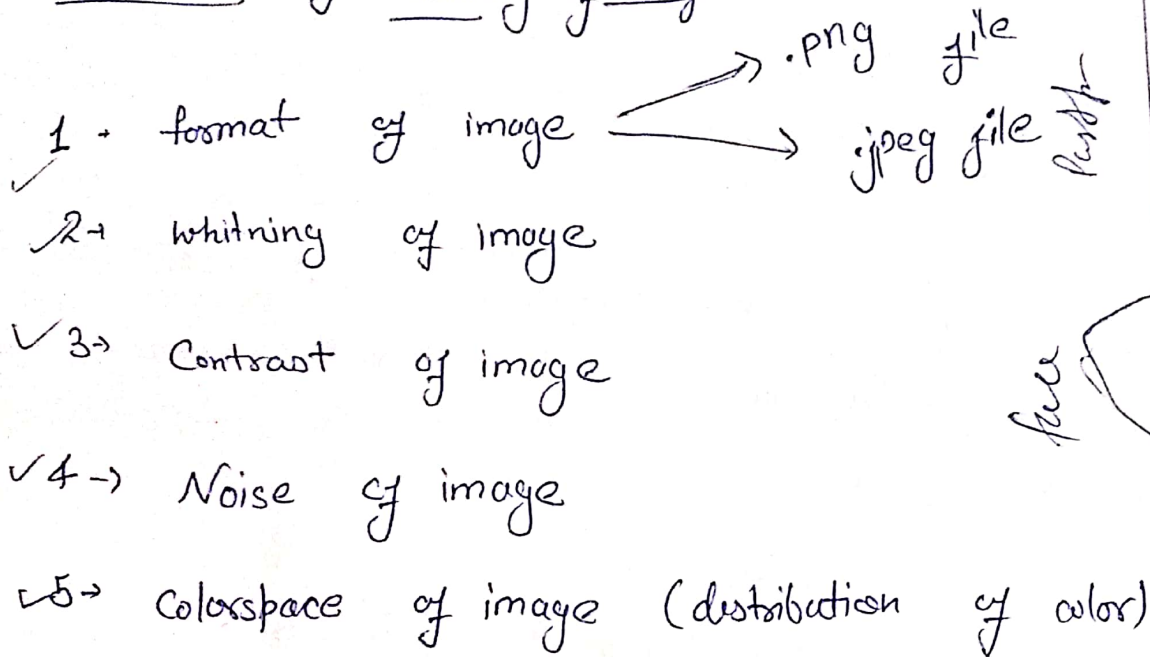 .png file
1. format of image
.jpeg file
2→ whitning of image
3→ Contrast of image
face
4→ Noise of image
5→ Colorspace of image (distribution of color)